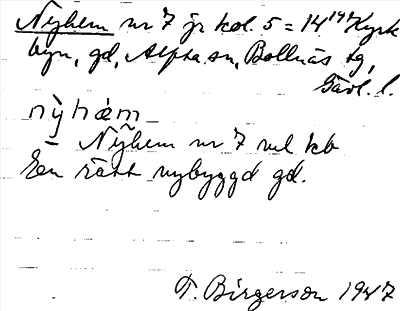 Nyhem nr 7 jr kol. 5 = 14¹⁴⁷ Kyrk
byn, gd, Alfta sn, Bollnäs tg,
Gävl. l.
nỳhæ̀m
Nyhem nr 7 vel kb
En rätt nybyggd gd.
T. Birgerson 1947